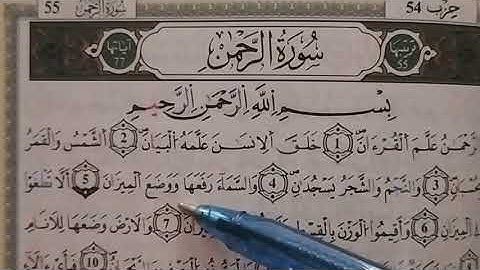 حِزْب 54
سُورَةُ الرَّحْمَٰن 55
ترتيبها 55
سُورَةُ الرَّحْمَٰنِ
آياتها 77
بِسْمِ اللَّهِ الرَّحْمَٰنِ الرَّحِيمِ
الرَّحْمَٰنُ عَلَّمَ الْقُرْءَانَ 1 خَلَقَ الْإِنسَٰنَ عَلَّمَهُ الْبَيَانَ 2 الشَّمْسُ وَالْقَمَرُ
بِحُسْبَانٍ 3 وَالنَّجْمُ وَالشَّجَرُ يَسْجُدَانِ 4 وَالسَّمَاءَ رَفَعَهَا وَوَضَعَ الْمِيزَانَ 5 أَلَّا تَطْغَوْا
فِي الْمِيزَانِ 6 وَأَقِيمُوا الْوَزْنَ بِالْقِسْطِ 7 وَالْأَرْضَ وَضَعَهَا لِلْأَنَامِ
10 فَبِأَيِّ ءَالَآءِ